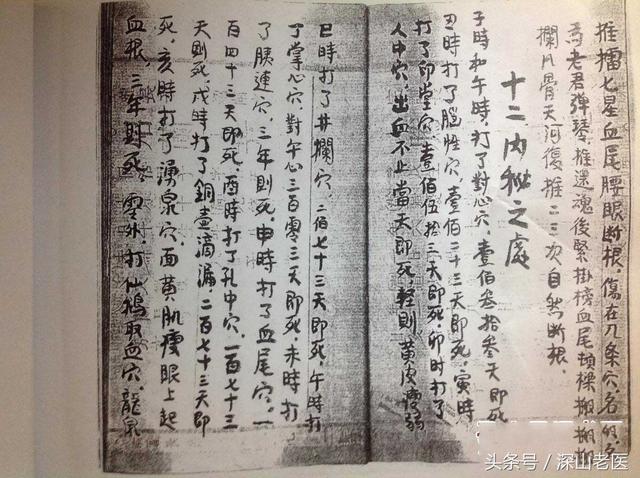 推擂七星血尾腰眼断根，傷在几条穴，名的名
為老君弹琴，推還魂後緊掛榜血尾頓樑搬搬搬
欄凡骨天河復推二三次自然断根。
十二内秘之處
子時和午時，打了對心穴，壹佰叁拾叁天即死
丑時打了腦性穴，壹佰二十三天即死，寅時
打了印堂穴，壹佰伍拾三天即死，卯时打了
人中穴，出血不止當天即死，輕則黄皮
巳時打了井欄穴，二佰七十三天即死，午時打
了掌心穴，對午心三百零三天即死，未時打
了胰連穴，三年則死，申時打了血尾穴，一
百四十三天即死，酉時打了孔中穴，一百七十三
天則死，戌時打了銅壺滴漏，二百七十三天即
死，亥時打了湧泉穴，面黄肌瘦眼上起
血根，三年財死，零外，打仙撟取血穴，龍泉
头条号／深山老医